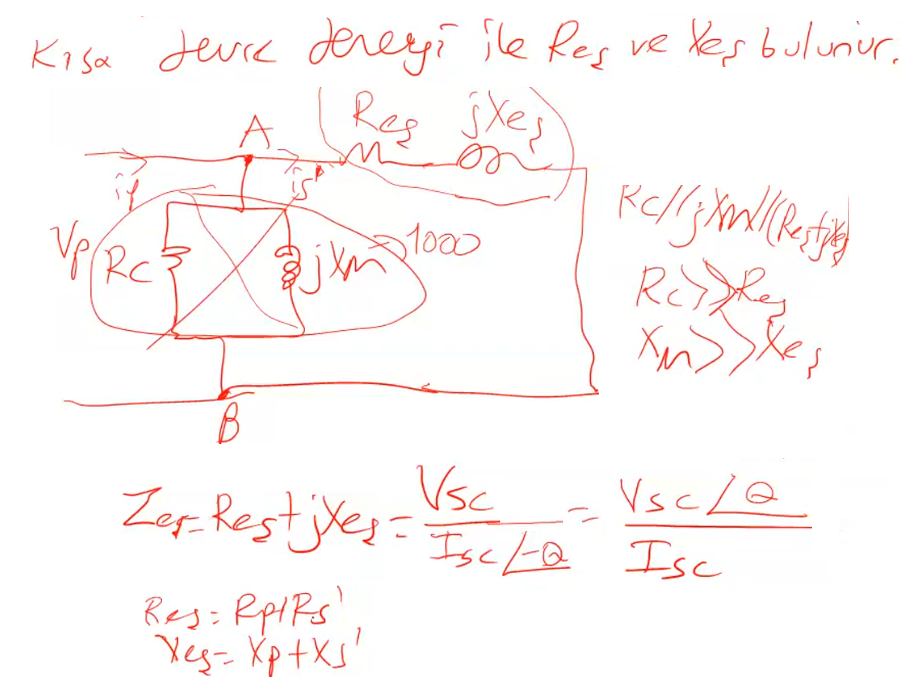 Kısa devre deneyi ile Reş ve Xeş bulunur.
Reş jXeş
A
ip is'
Vp Rc jXm 1000
Rc//jXm//(Reş+jXeş)
Rc>>Reş
Xm>>Xeş
B
Zeş=Reş+jXeş=Vsc/Isc∠-θ=Vsc∠θ/Isc
Reş=Rp+Rs'
Xeş=Xp+Xs'